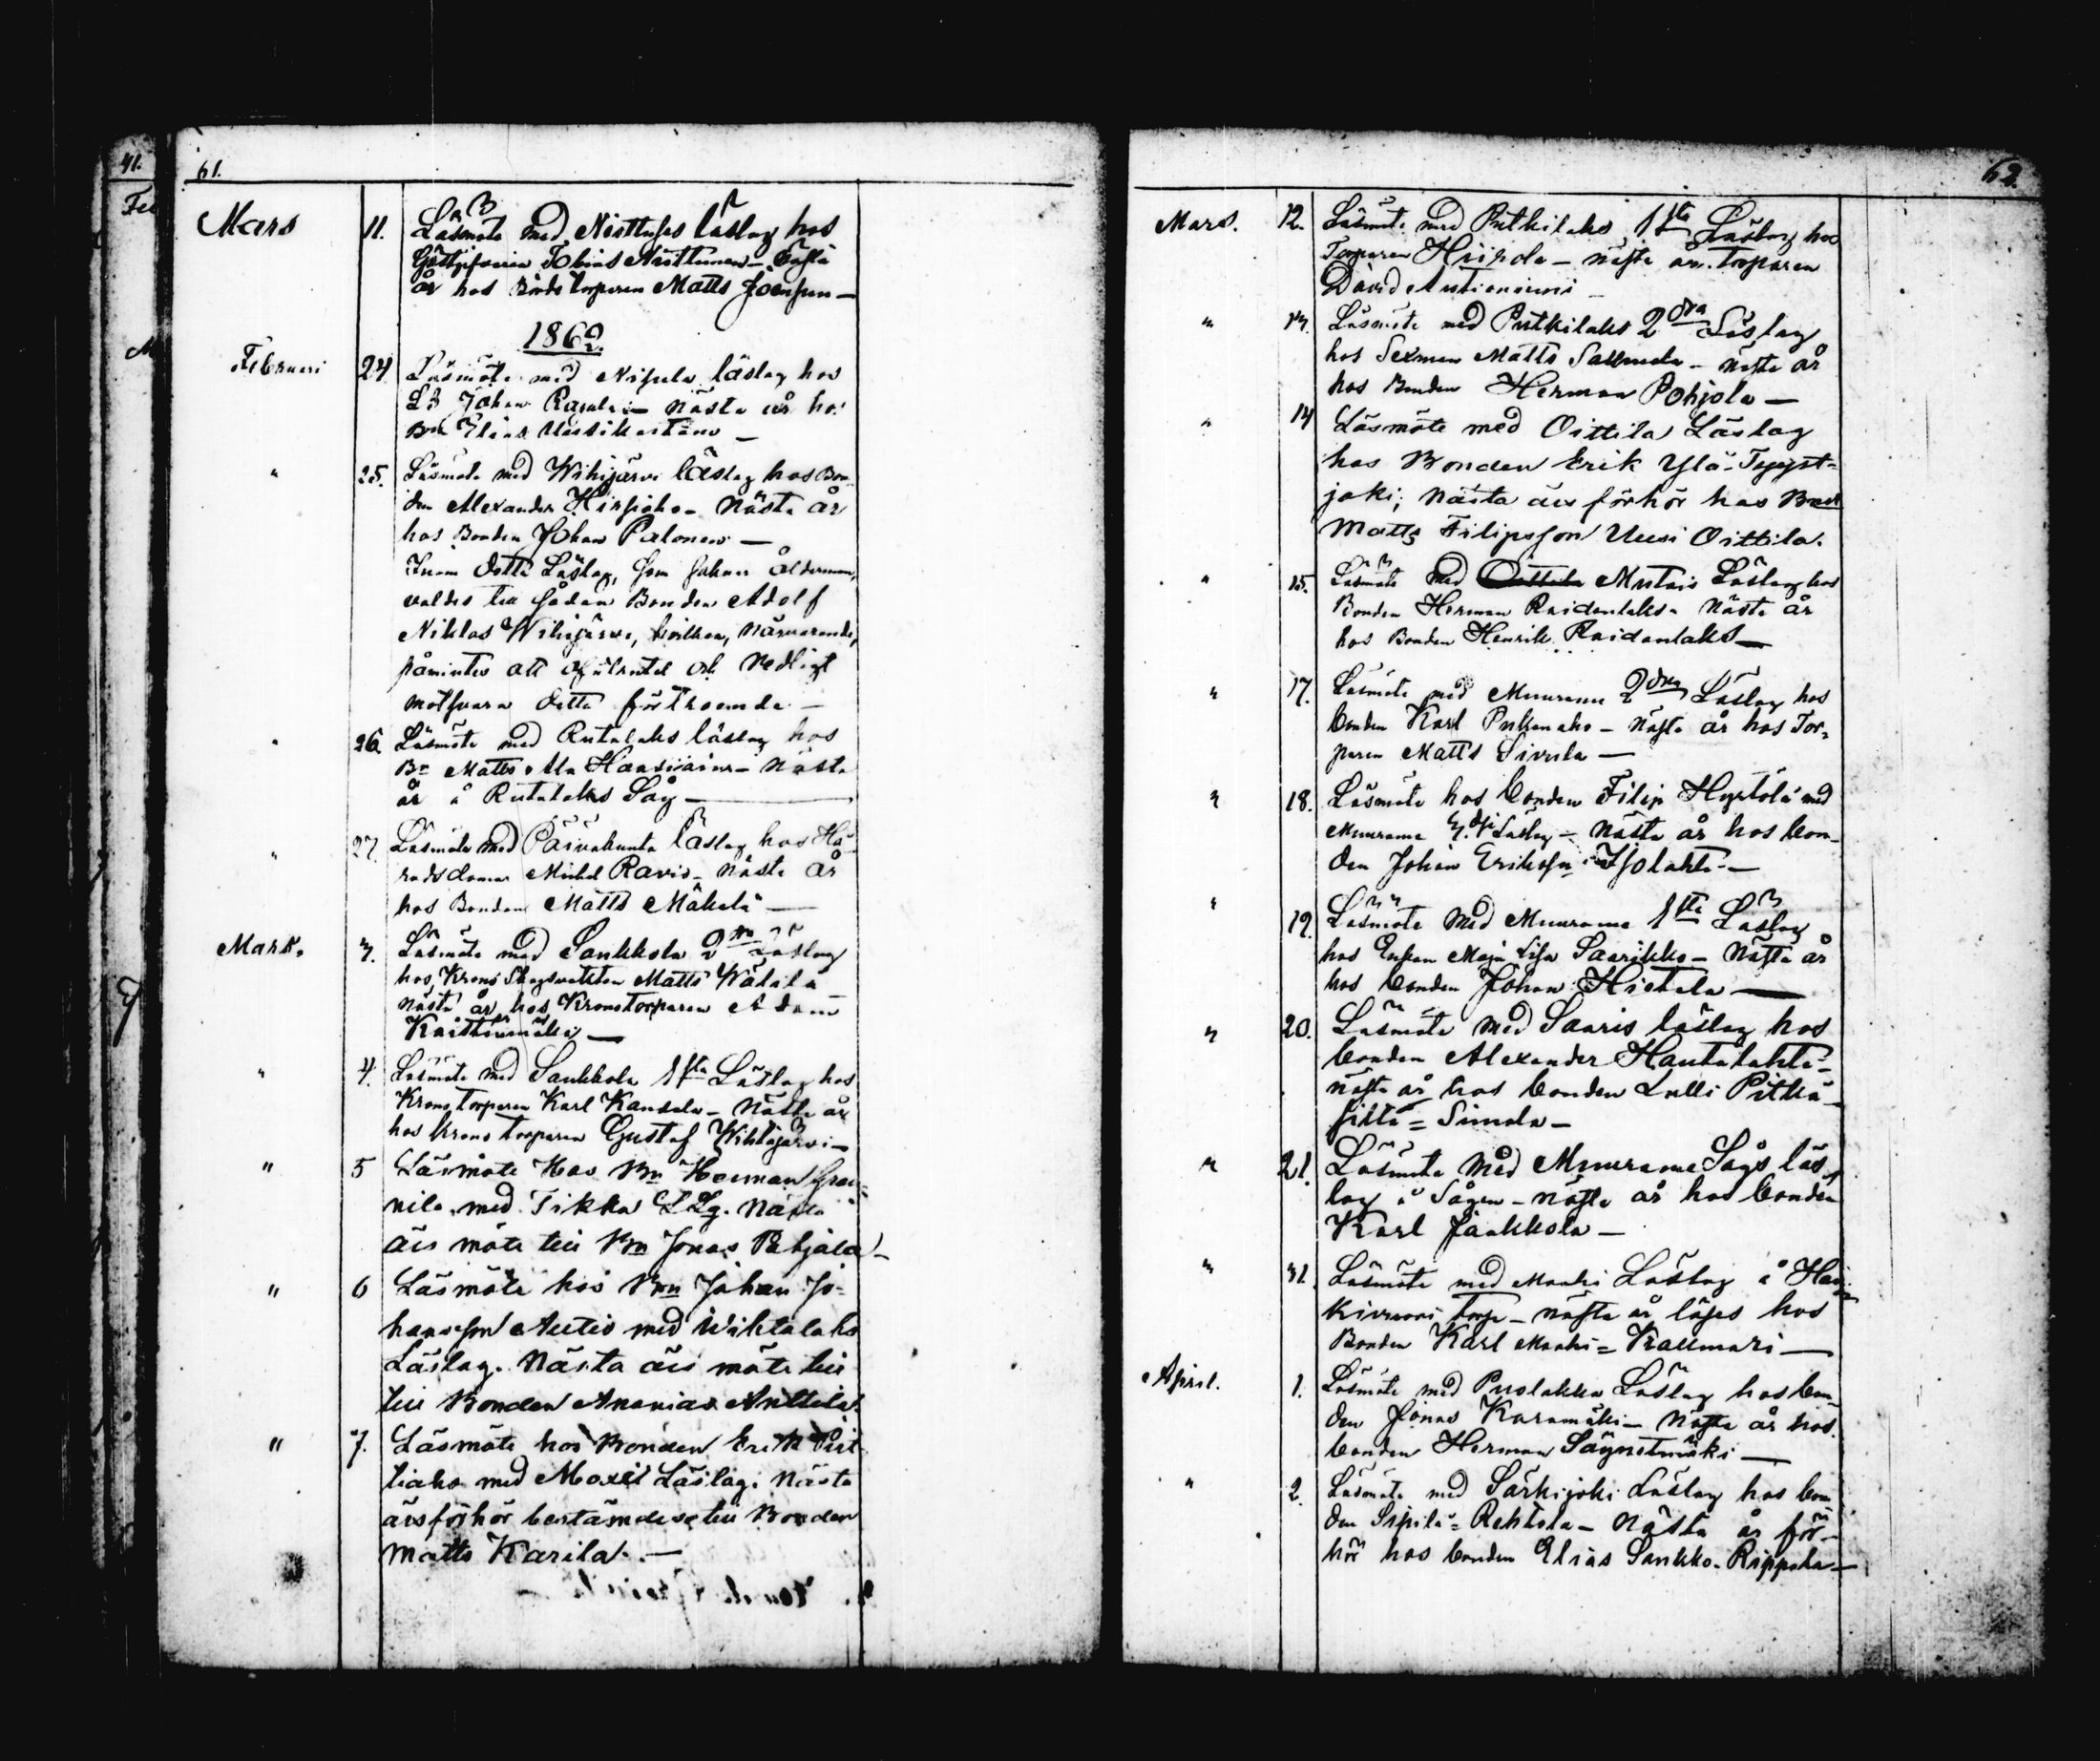 41.
61.
Mars 11. Läsmöte med Niittuses läslag hos
Gästgifvaren Tobias Niittunen – Nästa
år hos Torparen Matts Joensuu –
1862.
Februari 24 Läsmöte med Nisula läslag hos
Johan Rasula – Nästa år hos
Bn Elias
" 25. Läsmöte med Wihijärvi läslag hos Bon-
den Alexander Hirsioho – Nästa år
hos Bonden Johan Palonen –
Inom detta Läslag, som saknar ålderman,
valdes till sådan Bonden Adolf
Niklas Wihijärvi, hvilken, närvarande,
påmintes att och redligt
motsvara detta förtroende –
" 26. Läsmöte med Rutalaks läslag hos
Bn Matts Ala – Nästa
år å Rutalaks Såg –
" 27. Läsmöte med Päiväkunta läslag hos Hä-
radsdomar Michel Ravio – Nästa år
hos Bonden Matts Mäkelä –
Mars. 3. Läsmöte med Saukkola 2dra Läslag
hos Krono Skogsvakten Matts
nästa år hos Kronotorparen Adam
" 4. Läsmöte med Saukkola 1sta Läslag hos
Kronotorparen Karl Kandela – Nästa år
hos Kronotorparen Gustaf Wihtajärvi –
" 5 Läsmöte Hos Bn Herman
med Tikka LLg. Nästa
års möte till Bn Jonas Pohjala –
" 6 Läsmöte hos Bn Johan Jo-
hansson Autio med Wihtalaks
Läslag. Nästa års möte till
till Bonden Ananias Anttila.
" 7. Läsmöte hos Bonden Erik Piit-
tiaho med Moxi Läslag. Nästa
årsförhör bestämdes till Bonden
Matts Karila. –
62.
Mars. 12. Läsmöte med Putkilaks 1sta Läslag hos
Torparen Hiipola – nästa år torparen
David
" 13. Läsmöte med Putkilaks 2dra Läslag
hos Sexman Matts – nästa år
hos Bonden Herman Pohjola –
" 14 Läsmöte med Oittila Läslag
hos Bonden Erik Ylä-Tyyst-
joki; Nästa års förhör hos Bond
Matts Filipsson Uusi Oittila.
" 15. Läsmöte med Oittila Mutais Läslag hos
Bonden Herman Raidanlaks – Nästa år
hos Bonden Henrik Raidanlaks –
" 17. Läsmöte med Muurame 2dra Läslag hos
bonden Karl – Nästa år hos Tor-
paren Matts Sivula –
" 18. Läsmöte hos bonden Filip Hyrtölä med
Muurame 3dje Läslag – Nästa år hos bon-
den Johan Eriksson Isolahti –
" 19. Läsmöte med Muurame 1sta Läslag
hos Enkan Maja Lisa Saarikko – Nästa år
hos bonden Johan Hietala –
" 20. Läsmöte med Saaris läslag hos
bonden Alexander Hautalahti –
nästa år hos bonden Lulli Pitkä-
silta = Simola –
" 21. Läsmöte med Muurame Sågs läs-
lag å Sågen – nästa år hos bonden
Karl Jaakkola –
" 31. Läsmöte med Maahi Läslag å
torp – nästa år läses hos
Bonden Karl Maahi = Kallmari –
April. 1. Läsmöte med Puolakka Läslag hos bon-
den Jonas Karamäki – Nästa år hos
bonden Herman Säynetmäki –
" 2. Läsmöte med Särkijoki Läslag hos bon
den Sipilä = Rehtola – Nästa år för-
hör hos bonden Elias Saukko-Rippola –